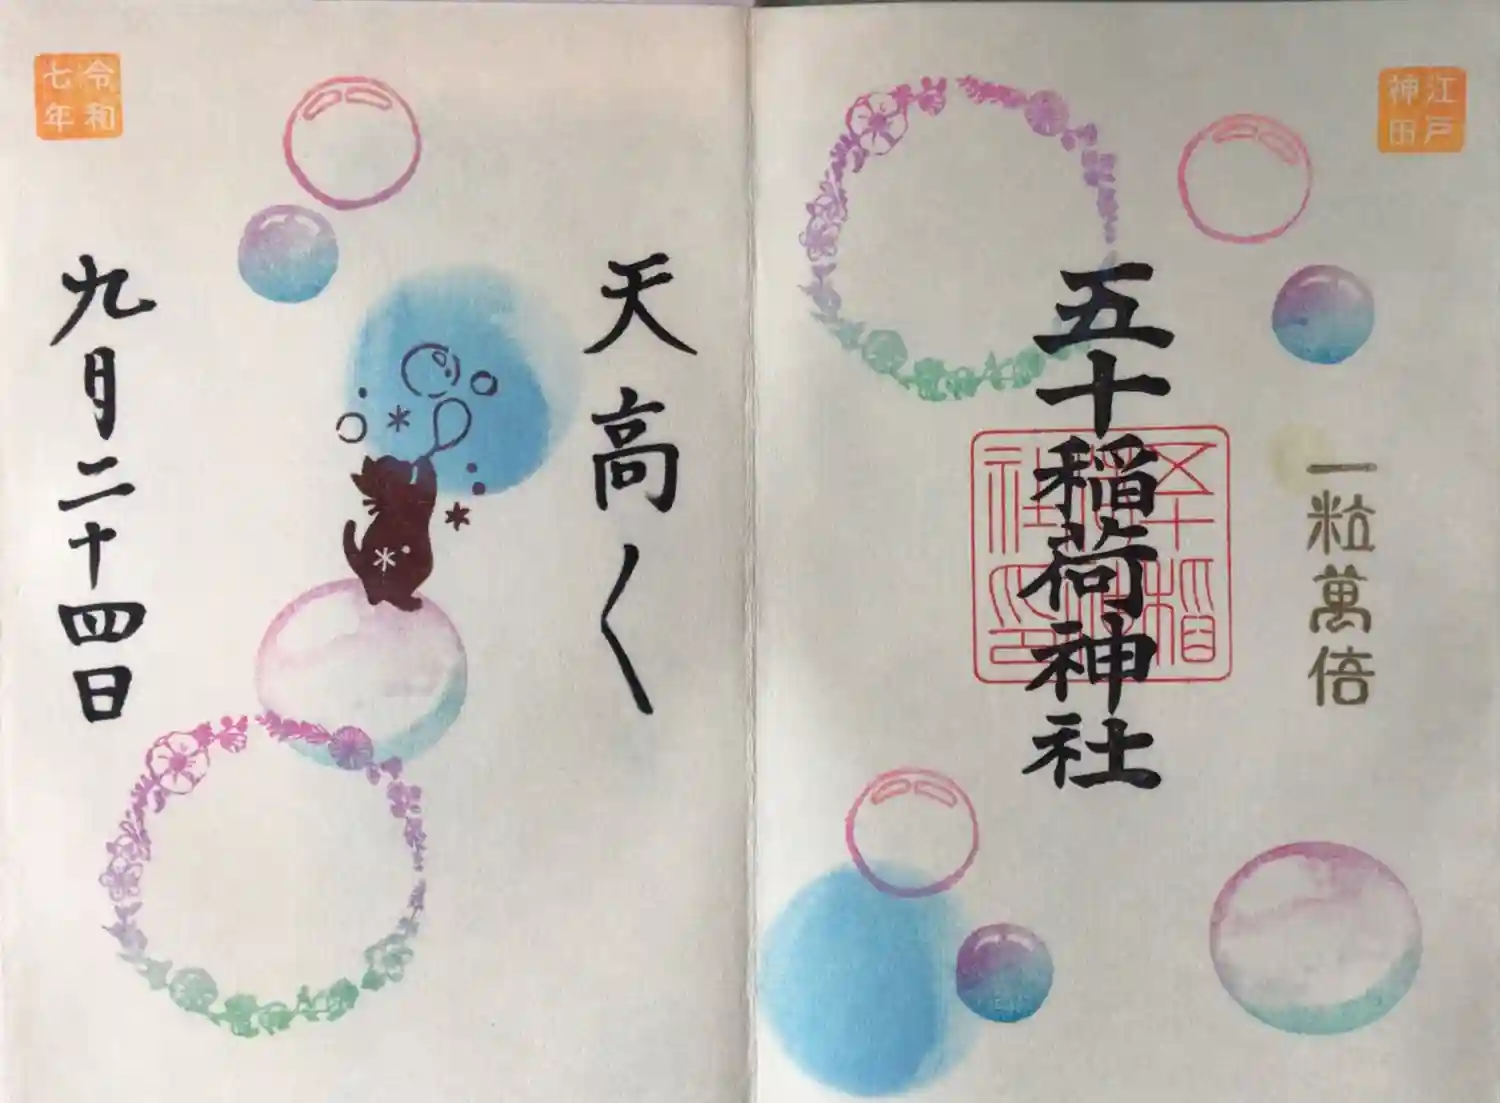 江戸
神田
一粒萬倍
五十稲荷神社
天高く
令和
七年
九月二十四日